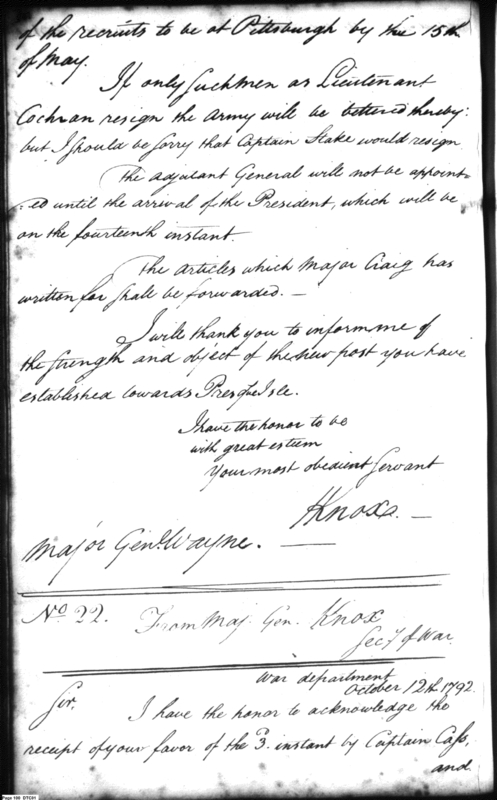 of the recruits to be at Pittsburgh by the 15th
of May.
If only such men as Lieutenant
Cochran resign the Army will be bettered thereby:
but I should be sorry that Captain Slake would resign
The adjutant General will not be appoint-
:ed until the arrival of the President, which will be
on the fourteenth instant.
The articles which Major Craig has
written for shall be forwarded. —
I will thank you to inform me of
the strength and object of the new post you have
established towards Presqu Isle.
I have the honor to be
with great esteem
Your most obedient Servant
HKnox. —
Major Genl. Wayne. —
No. 22. From Maj. Gen. Knox
Secy of War.
War department
October 12th. 1792.
Sir,
I have the honor to acknowledge the
receipt of your favor of the 3. instant by Captain Cass,
and
Page 108 DTC01